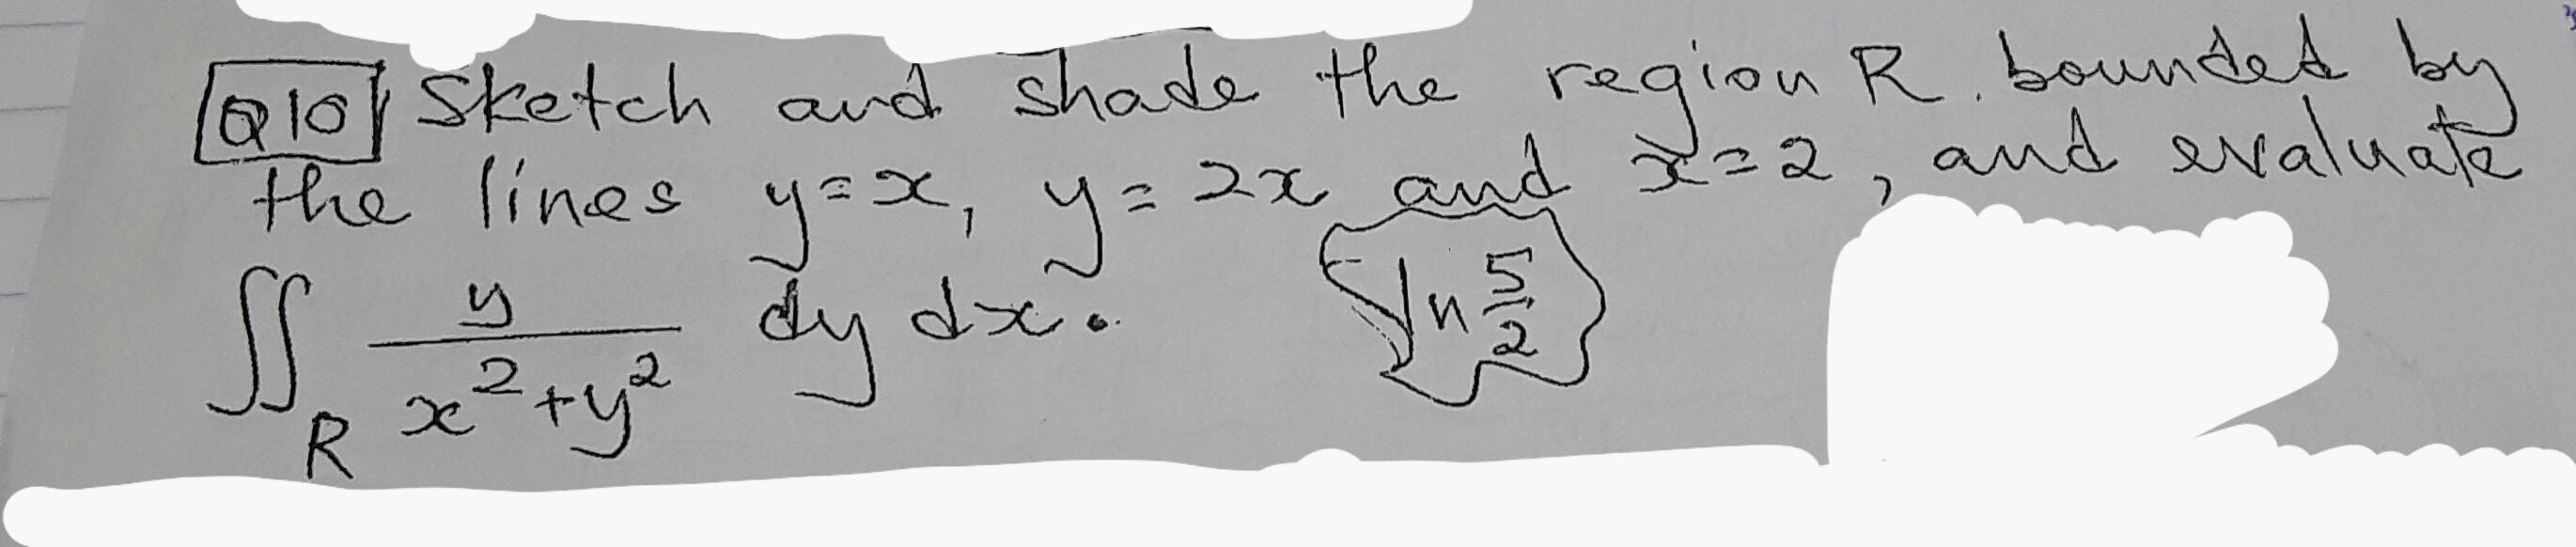 Q10 Sketch and shade the region R bounded by
the lines y=x, y=2x and x=2, and evaluate
∬_R y/(x²+y²) dy dx. ln 5/2